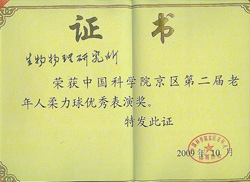 证书
生物物理研究所
荣获中国科学院京区第二届老
年人柔力球优秀表演奖。
特发此证
2009年10月